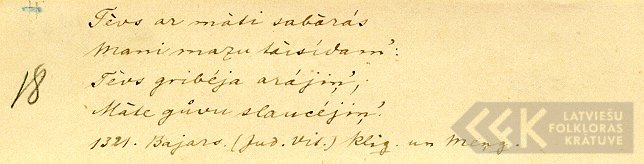 Tēvs ar māti sabārās
Mani mazu tāisīdam':
18
Tēvs gribēja arājin',
Māte gůvu slaucējin'.
1321. Bajars. (Jud. Vit.) Klig. un Meng.
LATVIEŠU
FOLKLORAS
KRĀTUVE